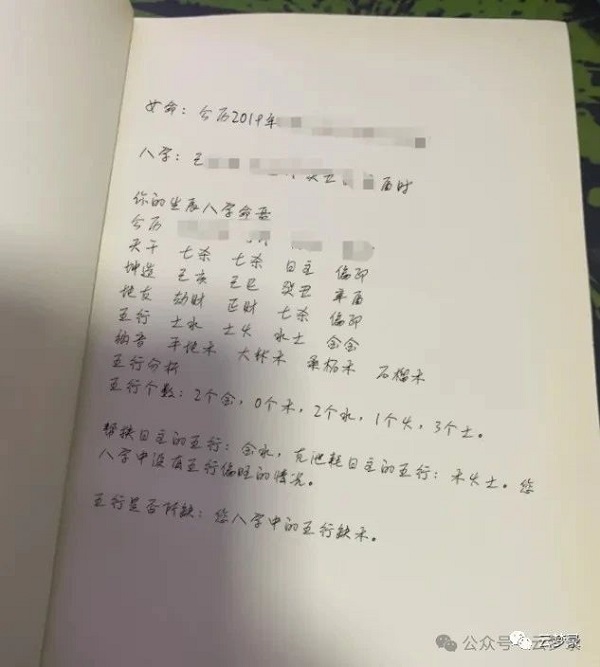 女命：公历2019年
八字：己 酉时
你的生辰八字命盘
公历
天干 七杀 七杀 日主 偏印
坤造 己亥 己巳 癸丑 辛酉
地支 劫财 正财 七杀 偏印
五行 土水 土火 水土 金金
纳音 平地木 大林木 桑柘木 石榴木
五行分析
五行个数：2个金，0个木，2个水，1个火，3个土。
帮扶日主的五行：金水，克泄耗日主的五行：木火土。您
八字中没有五行偏旺的情况。
五行是否所缺：您八字中的五行缺木。
公众号 云梦录